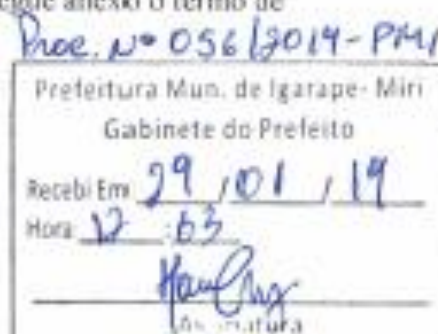 segue anexo o termo de
Proc. Nº 056/2019-PMI
Prefeitura Mun. de Igarape-Miri
Gabinete do Prefeito
Recebi Em 29 / 01 / 19
Hora 12 : 63
Assinatura